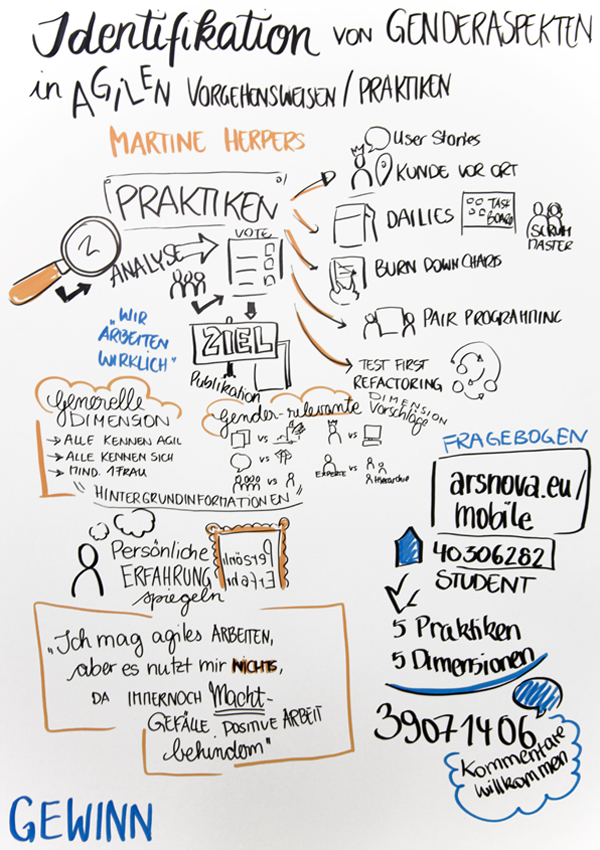 Identifikation von GENDERASPEKTEN
in AGILEN VORGEHENSWEISEN / PRAKTIKEN
MARTINE HERPERS
PRAKTIKEN
User Stories
KUNDE VOR ORT
DAILIES
TASK
BOARD
SCRUM
MASTER
BURN DOWN CHARTS
PAIR PROGRAMMING
TEST FIRST
REFACTORING
2
ANALYSE
VOTE
ZIEL
Publikation
"WIR
ARBEITEN
WIRKLICH"
Generelle
DIMENSION
→ ALLE KENNEN AGIL
→ ALLE KENNEN SICH
→ MIND. 1 FRAU
Gender-relevante
DIMENSION
Vorschläge
VS
VS
VS
VS
VS
EXPERTE VS
Hierarchie
"HINTERGRUNDINFORMATIONEN"
Persönliche
ERFAHRUNG
spiegeln
Persönl
Erfah
"Ich mag agiles ARBEITEN,
aber es nutzt mir NICHTS,
DA IMMERNOCH Macht-
GEFÄLLE POSITIVE ARBEIT
behindern"
FRAGEBOGEN
arsnova.eu/
mobile
40306282
STUDENT
5 Praktiken
5 Dimensionen
39071406
Kommentare
willkommen
GEWINN